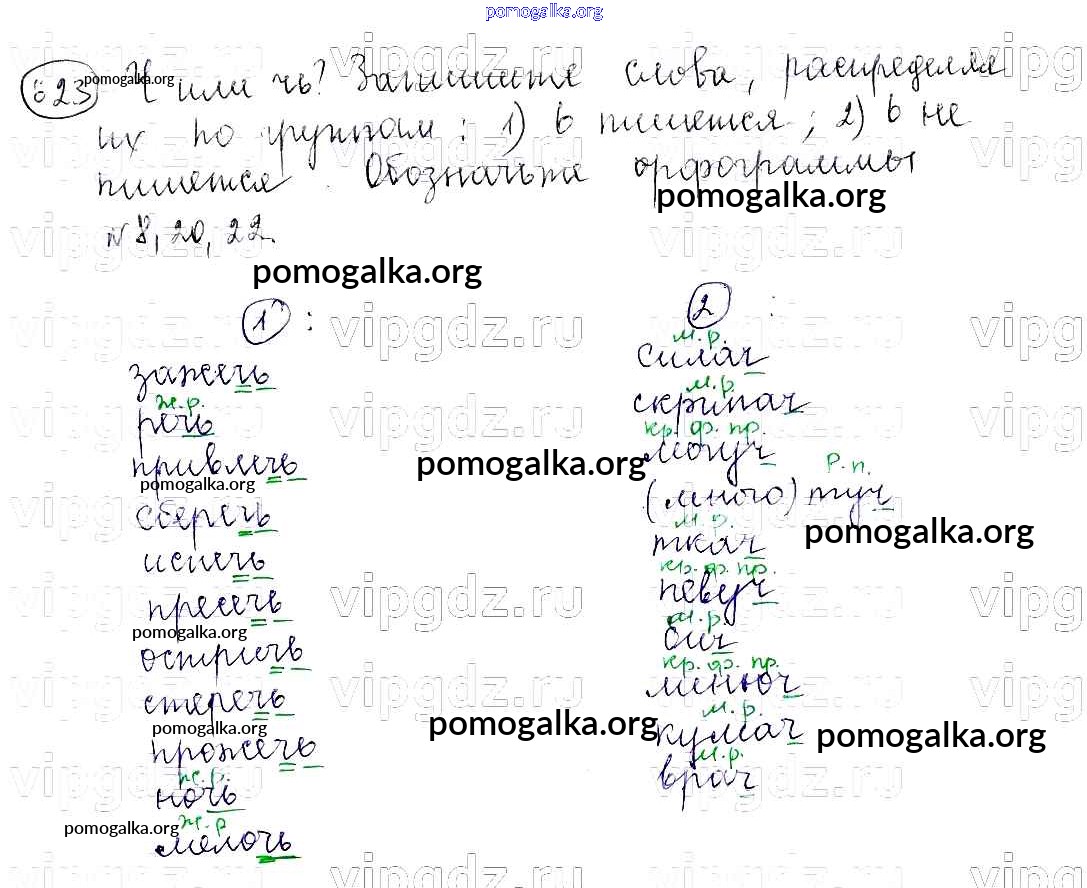 pomogalka.org
623 Ч или чь? Запишите слова, распределяя
их по группам: 1) ь пишется; 2) ь не
пишется. Обозначьте орфограммы
№ 8, 20, 22.
pomogalka.org
pomogalka.org
pomogalka.org
vipgdz.ru
1 :
зажечь
ж.р.
речь
привлечь
pomogalka.org
сберечь
испечь
пресечь
pomogalka.org
остричь
стеречь
pomogalka.org
прожечь
ж.р.
ночь
pomogalka.org
ж.р
мелочь
2 :
м.р.
силач
м.р.
скрипач
кр. ф. пр.
могуч
pomogalka.org
Р.п.
(много) туч
pomogalka.org
м.р.
ткач
кр. ф. пр.
певуч
м.р.
бич
кр. ф. пр.
минюч
м.р.
кумач
pomogalka.org
pomogalka.org
м.р.
врач